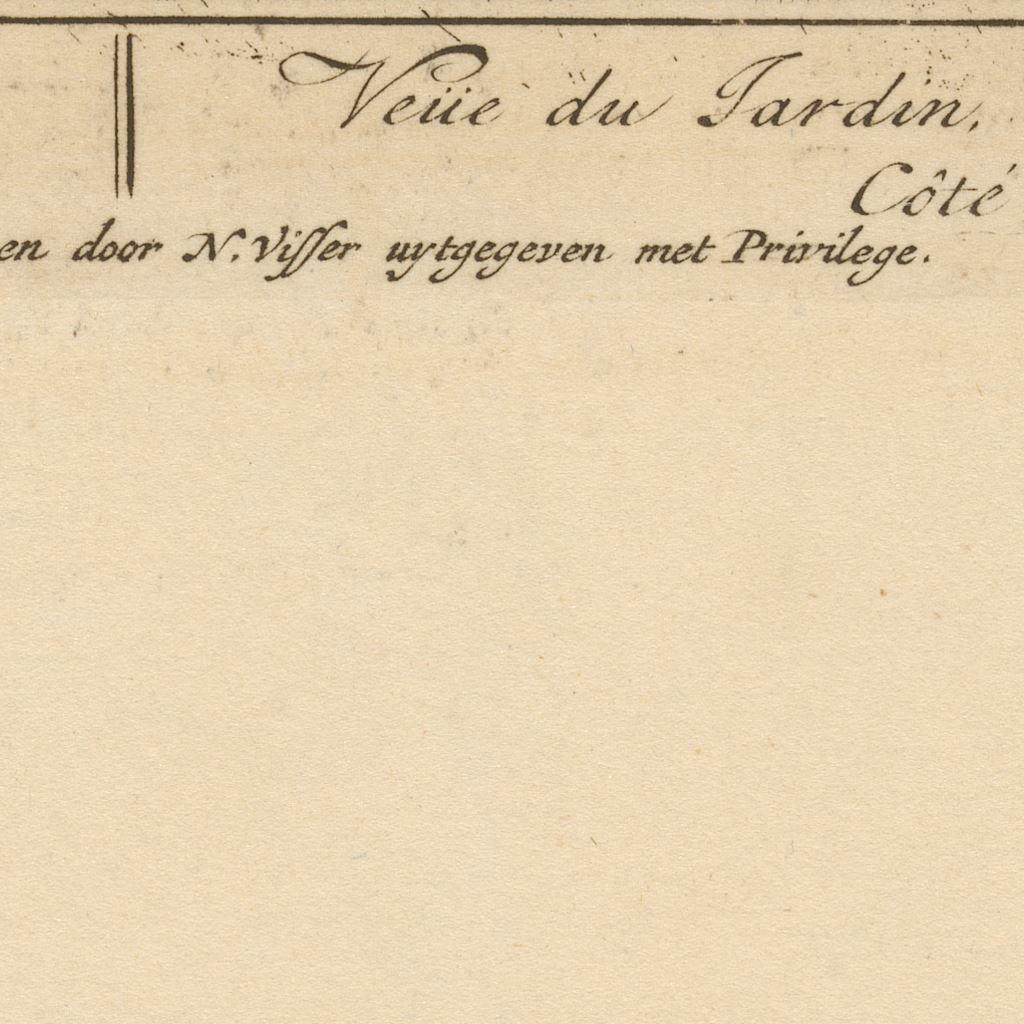 Veüe du Jardin,
Côté
en door N. Visser uytgegeven met Privilege.